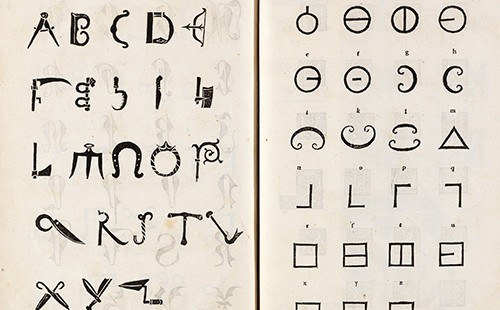 A B C D E
F G H I K
L M N O P
Q R S T V
X Y Z
e f g h
i k l m
n o p q
r ſ t u
x y z